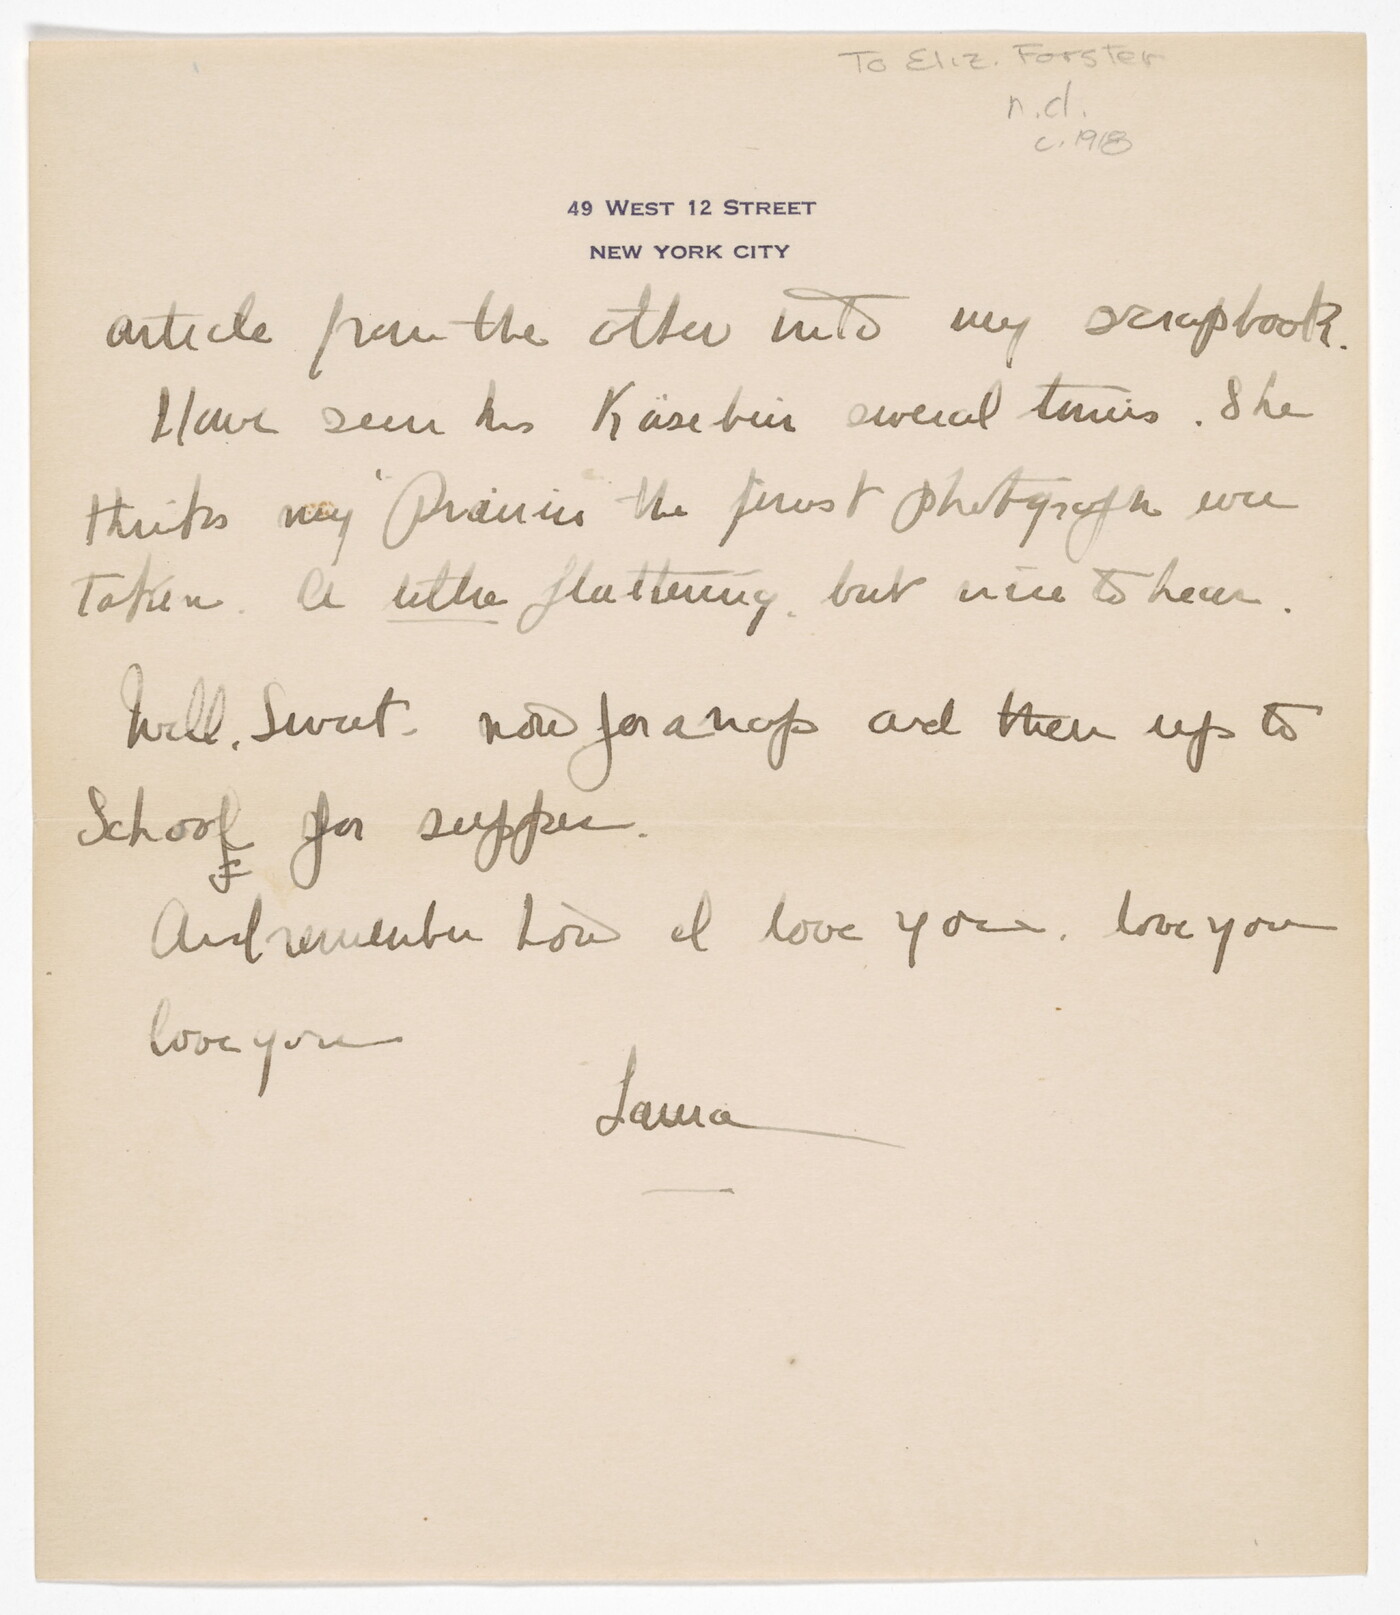 To Eliz. Forster
n.d.
c. 1918
49 WEST 12 STREET
NEW YORK CITY
article from the other into my scrapbook.
Have seen Mrs Käsebier several times. She
thinks my "Prairie" the finest photograph ever
taken. A little flattering, but nice to hear.
Well, Sweet. now for a nap and then up to
School for supper.
And remember how I love you. love you
love you
Laura